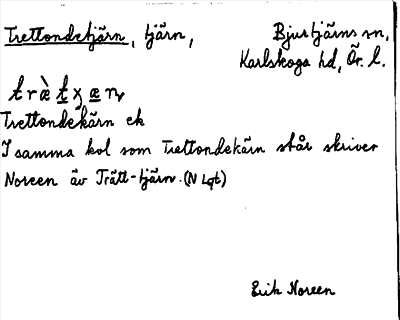 Trettondetjärn, tjärn, Bjurtjärns sn,
Karlskoga hd, Ör. l.
Trettondekärn ek
I samma kol som Trettondekärn står skriver
Noreen äv Trätt-tjärn. (N Lgt)
Erik Noreen